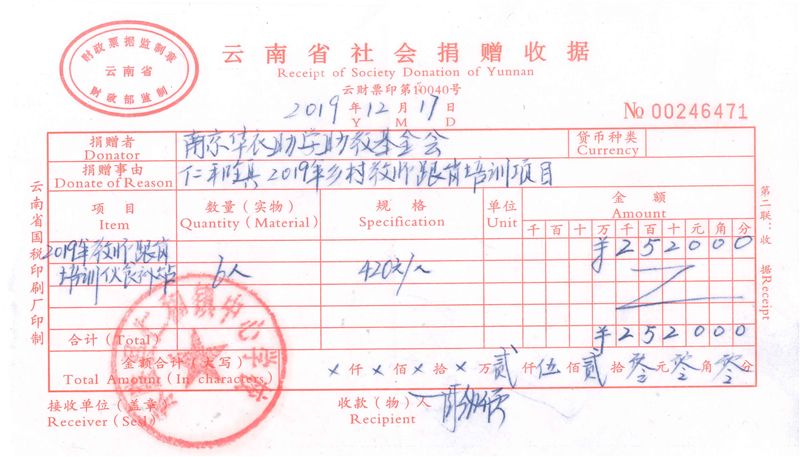 财政票据监制章
云南省
财政部监制
云南省社会捐赠收据
Receipt of Society Donation of Yunnan
云财票印第10040号
2019年12月17日
Y M D
№ 00246471
捐赠者 南京华衣助学助教基金会 货币种类
Donator Currency
捐赠事由 2019年乡村教师跟岗培训项目
Donate of Reason
项目 数量（实物） 规格 单位 金额
Item Quantity (Material) Specification Unit Amount
千百十万千百十元角分
2019年教师跟岗 ¥252000
培训伙食补贴 6人 420元/人
合计 (Total) ¥252000
金额合计（大写） ×仟×佰×拾×万贰仟伍佰贰拾零元零角零分
Total Amount (In characters)
接收单位（盖章） 收款（物）人
Receiver (Seal) Recipient
云南省国税印刷厂印制
第二联：收据 Receipt